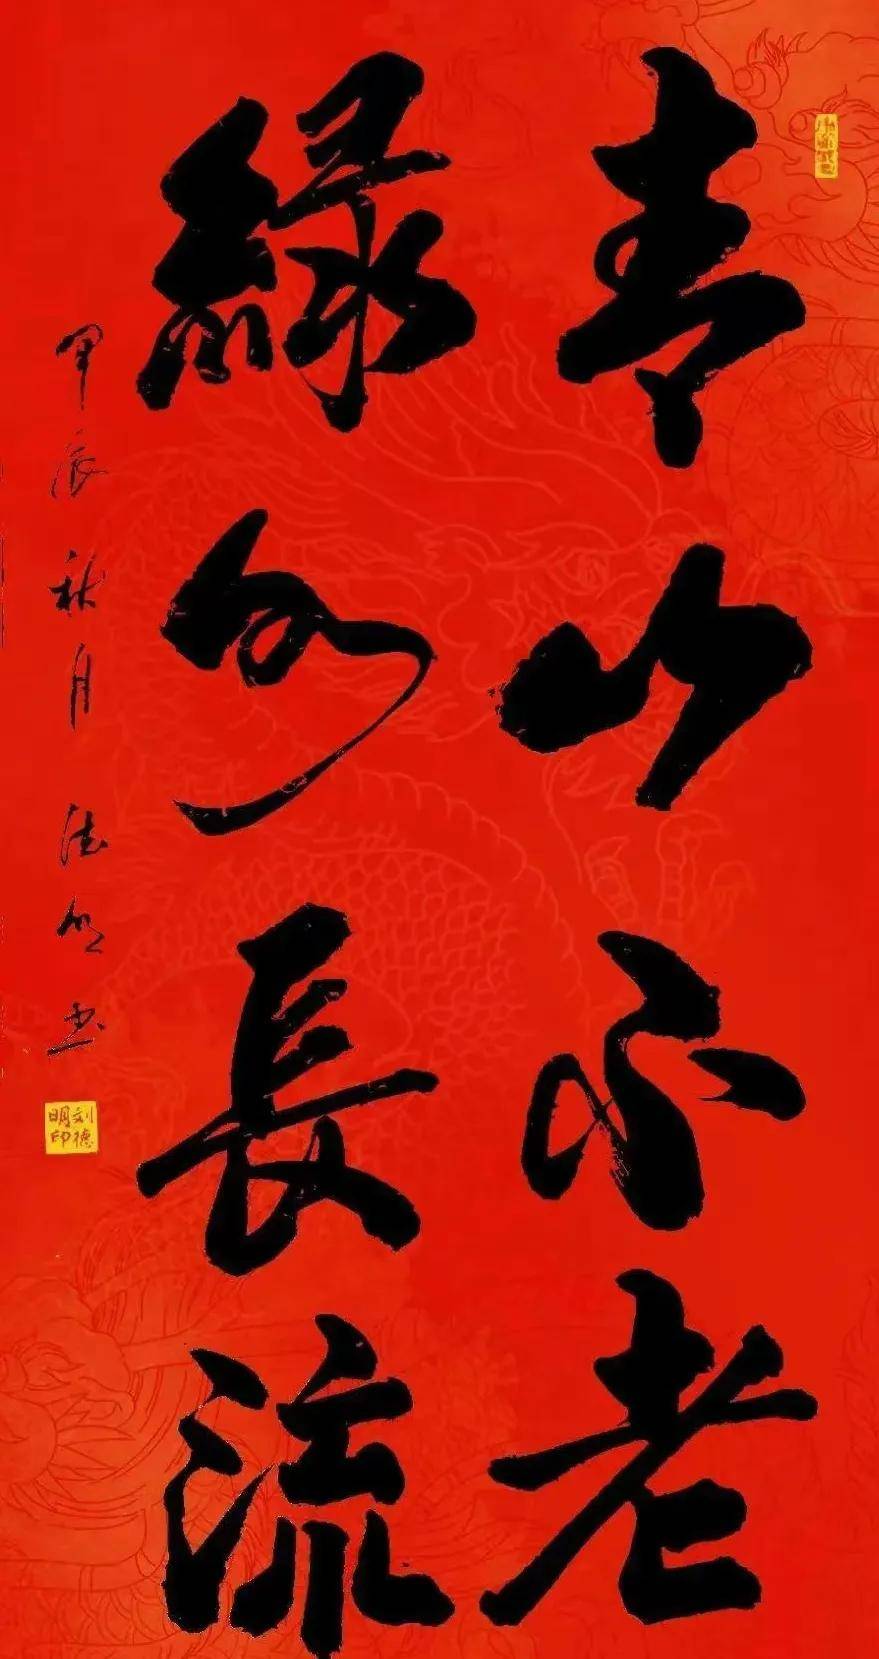 青山不老
緑水長流
甲辰秋月德明書
刘德明印